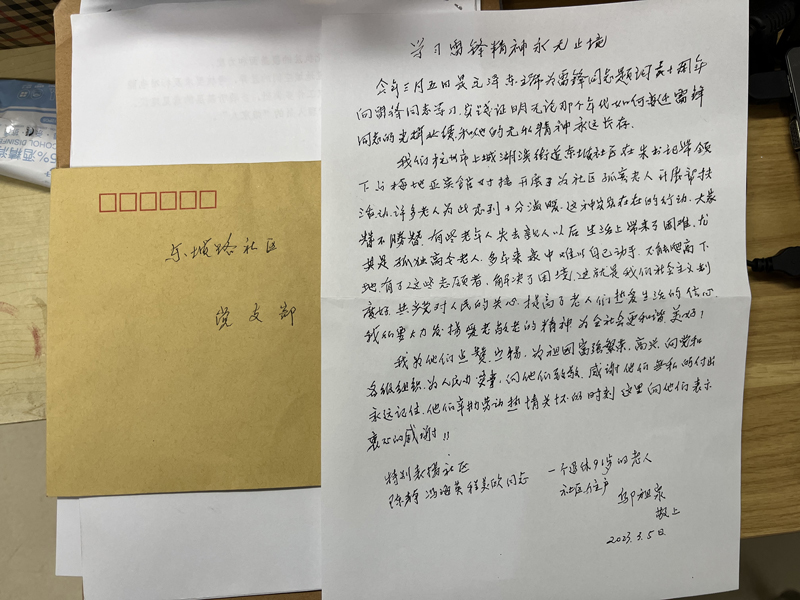 5%酒精消
东坡路社区
党支部
学习雷锋精神永无止境
今年三月五日是毛泽东主席为雷锋同志题词六十周年
向雷锋同志学习,实践证明无论那个年代如何变迁雷锋
同志的光辉业绩和他的无私精神永远长存.
我们杭州市上城湖滨街道东坡社区在朱书记带领
下与梅地亚宾馆对接开展了为社区孤寡老人开展帮扶
活动.许多老人为此感到十分温暖.这种实实在在的行动.大家
赞不胜赞.有些老年人失去亲人以后生活上带来了困难.尤
其是孤独高令老人.多年来家中难以自己动手.不能爬高下
地有了这些志愿者,解决了困境,这就是我们社会主义制
度好.共产党对人民的关心.提高了老人们热爱生活的信心.
我们要大力发扬爱老敬老的精神为全社会更和谐美好!
我为他们点赞,祖国富强繁荣,高兴.向党和
各级组织.为人民办实事,向他们致敬.感谢他们无私的付出
永远记住.他们辛勤劳动热情关怀的时刻这里向他们表示
衷心的感谢!!
特别表扬社区
陈静 冯海英 程美欣同志
一个退休91岁的老人
社区住户
邬祖泉
敬上
2023.3.5日